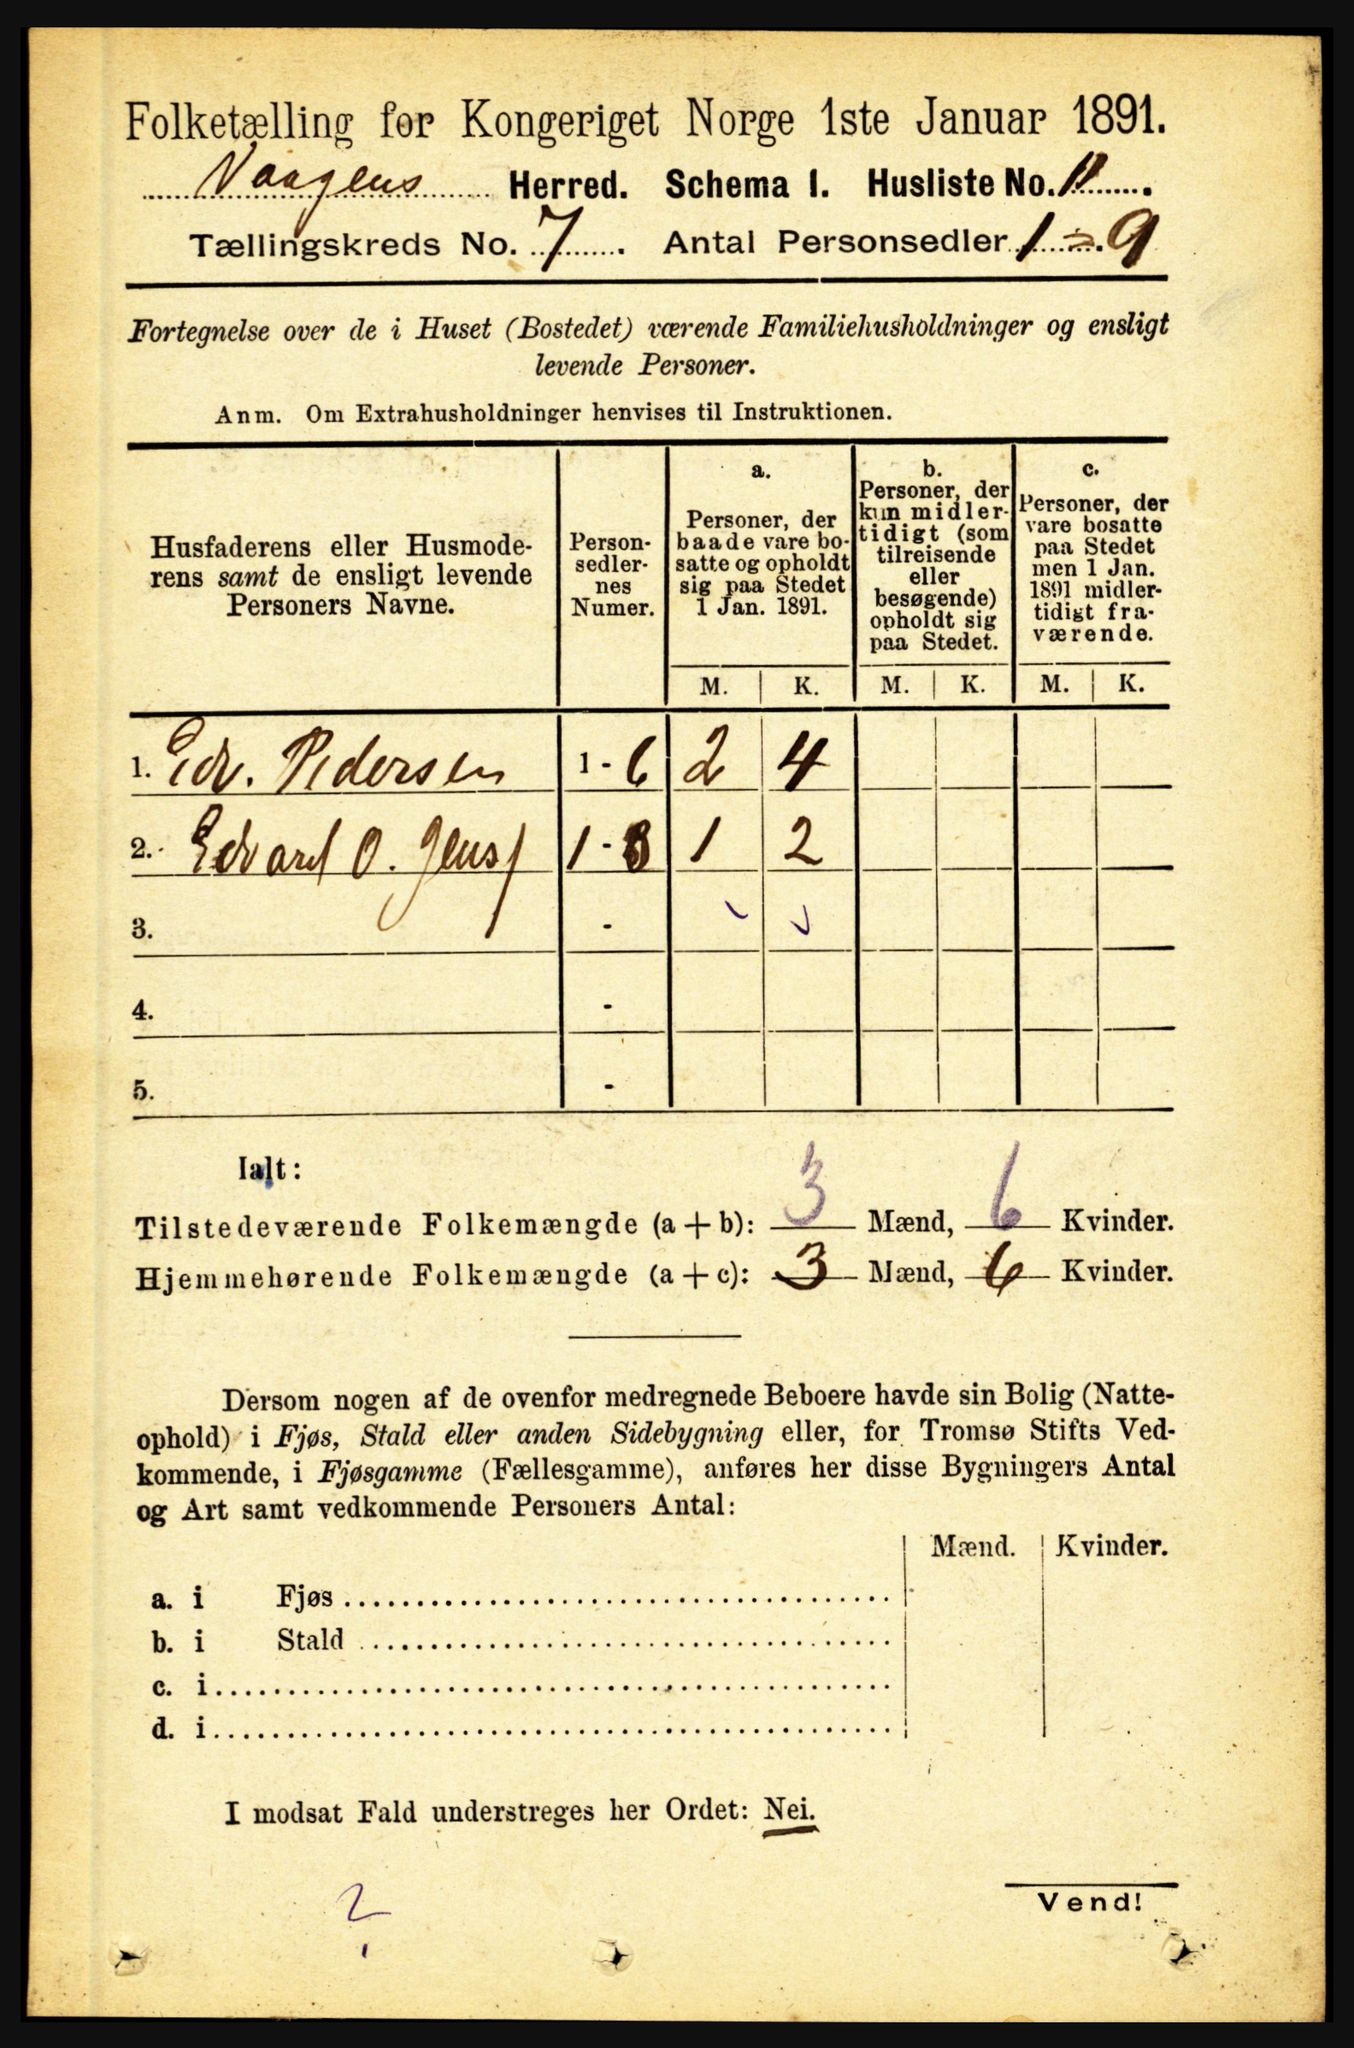 Folketælling for Kongeriget Norge 1ste Januar 1891.
Vaagens Herred. Schema 1. Husliste No. 11.
Tællingskreds No. 7. Antal Personsedler 1 - 9
Fortegnelse over de i Huset (Bostedet) værende Familiehusholdninger og ensligt
levende Personer.
Anm. Om Extrahusholdninger henvises til Instruktionen.
Husfaderens eller Husmode-
rens samt de ensligt levende
Personers Navne.
Person-
sedler-
nes
Numer.
a.
Personer, der
baade vare bo-
satte og opholdt
sig paa Stedet
1 Jan. 1891.
b.
Personer, der
kun midler-
tidigt (som
tilreisende
eller
besøgende)
opholdt sig
paa Stedet.
c.
Personer, der
vare bosatte
paa Stedet
men 1 Jan.
1891 midler-
tidigt fra-
værende.
M. K. M. K. M. K.
1. Edv. Pedersen 1 - 6 2 4
2. Edvard O. Jens 1 - 3 1 2
3. -
4. -
5. -
Ialt:
Tilstedeværende Folkemængde (a + b): 3 Mænd, 6 Kvinder.
Hjemmehørende Folkemængde (a + c): 3 Mænd, 6 Kvinder.
Dersom nogen af de ovenfor medregnede Beboere havde sin Bolig (Natte-
ophold) i Fjøs, Stald eller anden Sidebygning eller, for Tromsø Stifts Ved-
kommende, i Fjøsgamme (Fællesgamme), anføres her disse Bygningers Antal
og Art samt vedkommende Personers Antal:
Mænd. Kvinder.
a. i Fjøs
b. i Stald
c. i
d. i
I modsat Fald understreges her Ordet: Nei.
Vend!